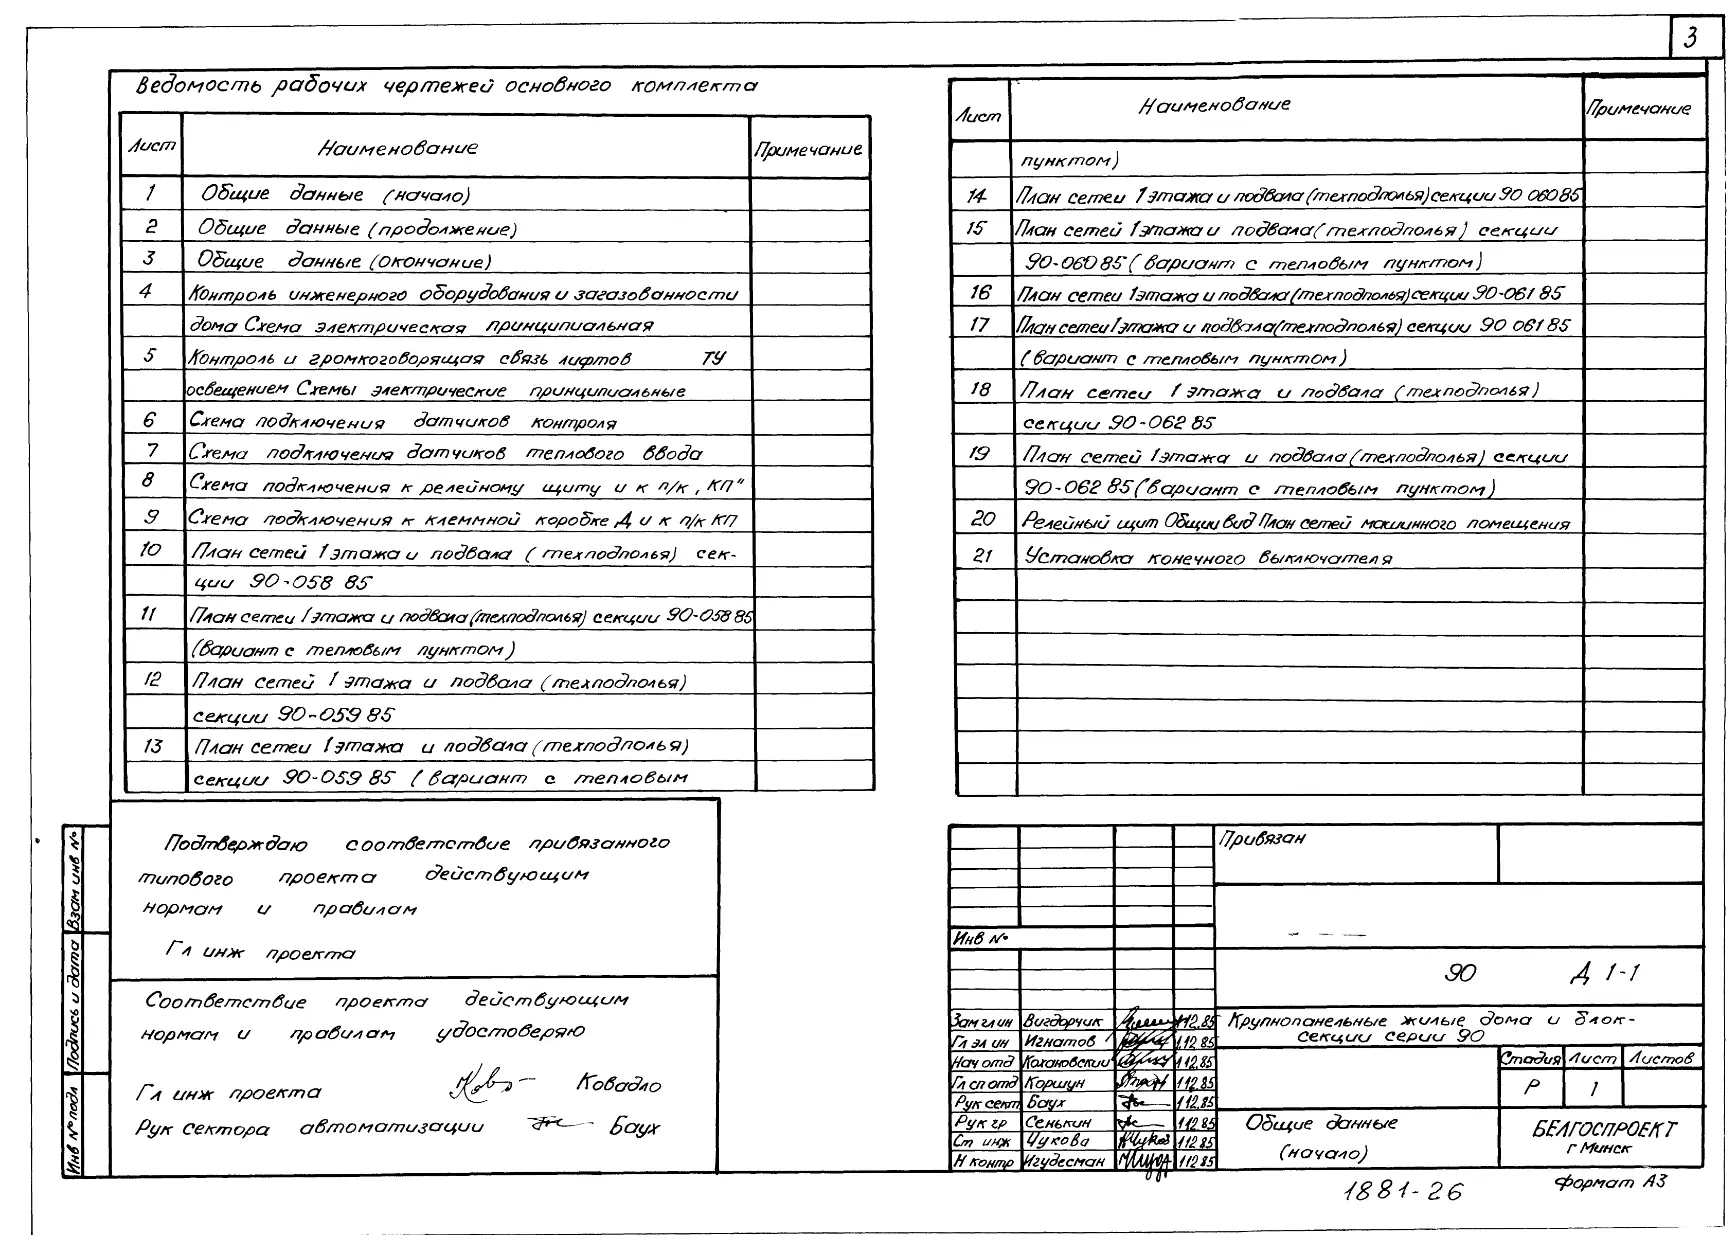 3
Ведомость рабочих чертежей основного комплекта
Лист Наименование Примечание
1 Общие данные (начало)
2 Общие данные (продолжение)
3 Общие данные (окончание)
4 Контроль инженерного оборудования и загазованности
дома Схема электрическая принципиальная
5 Контроль и громкоговорящая связь лифтов ТУ
освещением Схемы электрические принципиальные
6 Схема подключения датчиков контроля
7 Схема подключения датчиков теплового ввода
8 Схема подключения к релейному щиту и к п/к , КП"
9 Схема подключения к клеммной коробке Д и к п/к КП
10 План сетей 1 этажа и подвала ( техподполья) сек-
ции 90-058 85
11 План сетей 1 этажа и подвала (техподполья) секции 90-058 85
(вариант с тепловым пунктом)
12 План сетей 1 этажа и подвала (техподполья)
секции 90-059 85
13 План сетей 1 этажа и подвала (техподполья)
секции 90-059 85 (вариант с тепловым
Лист Наименование Примечание
пунктом)
14 План сетей 1 этажа и подвала (техподполья) секции 90 060 85
15 План сетей 1 этажа и подвала (техподполья) секции
90-060 85 (вариант с тепловым пунктом)
16 План сетей 1 этажа и подвала (техподполья) секции 90-061 85
17 План сетей 1 этажа и подвала (техподполья) секции 90 061 85
(вариант с тепловым пунктом)
18 План сетей 1 этажа и подвала (техподполья)
секции 90-062 85
19 План сетей 1 этажа и подвала (техподполья) секции
90-062 85 (вариант с тепловым пунктом)
20 Релейный щит Общий вид План сетей машинного помещения
21 Установка конечного выключателя
Подтверждаю соответствие привязанного
типового проекта действующим
нормам и правилам
Гл инж проекта
Соответствие проекта действующим
нормам и правилам удостоверяю
Гл инж проекта Ковадло
Рук сектора автоматизации Баух
Взам инв №
Подпись и дата
Инв № подл
Привязан
Инв №
90 Д 1-1
Зам гл ин Вигдорчик 1 12.85
Гл эл ин Игнатов 1.12.85
Нач отд Кохановский 1 12.85
Гл сп отд Коршун 1 12.85
Рук сект Баух 1 12.85
Рук гр Сенькин 1 12.85
Ст инж Чукова 1 12 85
Н контр Игудесман 1 12 85
Крупнопанельные жилые дома и блок-
секции серии 90
Стадия Лист Листов
Р 1
Общие данные
(начало)
БЕЛГОСПРОЕКТ
г Минск
1881-26
Формат А3